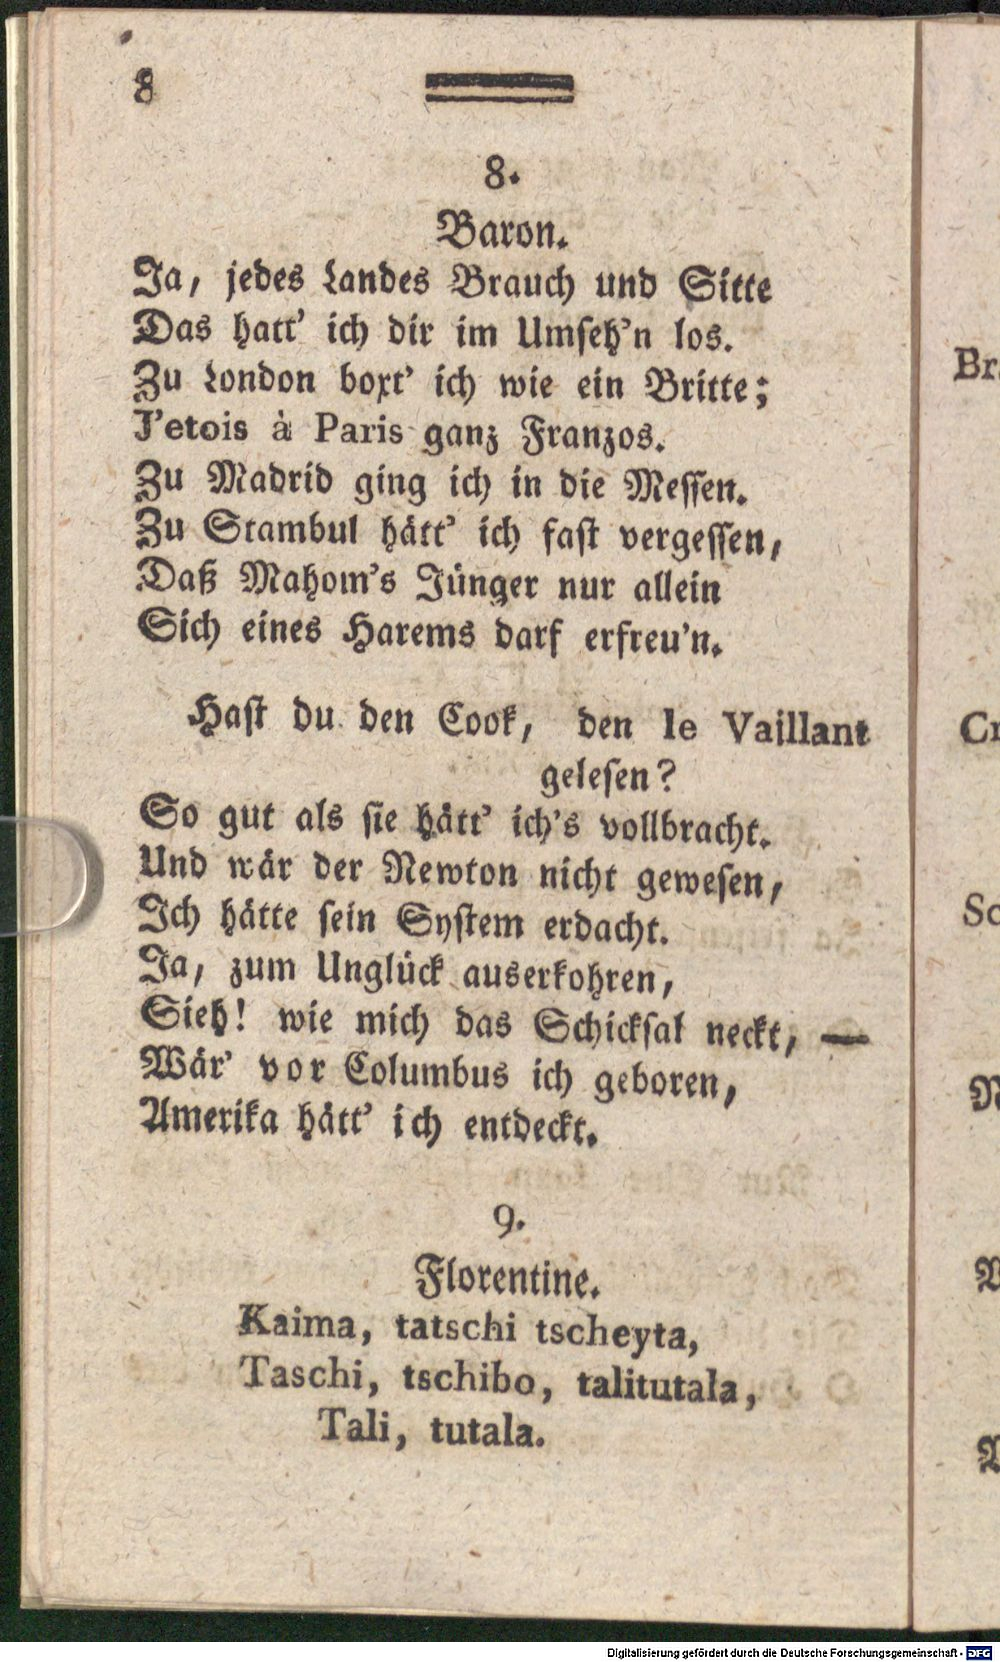 8
8.
Baron.
Ja, jedes Landes Brauch und Sitte
Das hatt' ich dir im Umseh'n los.
Zu London boxt' ich wie ein Britte;
J'etois à Paris ganz Franzos.
Zu Madrid ging ich in die Messen.
Zu Stambul hätt' ich fast vergessen,
Daß Mahom's Jünger nur allein
Sich eines Harems darf erfreu'n.
Hast du den Cook, den le Vaillant
gelesen?
So gut als sie hätt' ich's vollbracht.
Und wär der Newton nicht gewesen,
Ich hätte sein System erdacht.
Ja, zum Unglück auserkohren,
Sieh! wie mich das Schicksal neckt, —
Wär' vor Columbus ich geboren,
Amerika hätt' ich entdeckt.
9.
Florentine.
Kaima, tatschi tscheyta,
Taschi, tschibo, talitutala,
Tali, tutala.
Digitalisierung gefördert durch die Deutsche Forschungsgemeinschaft - DFG